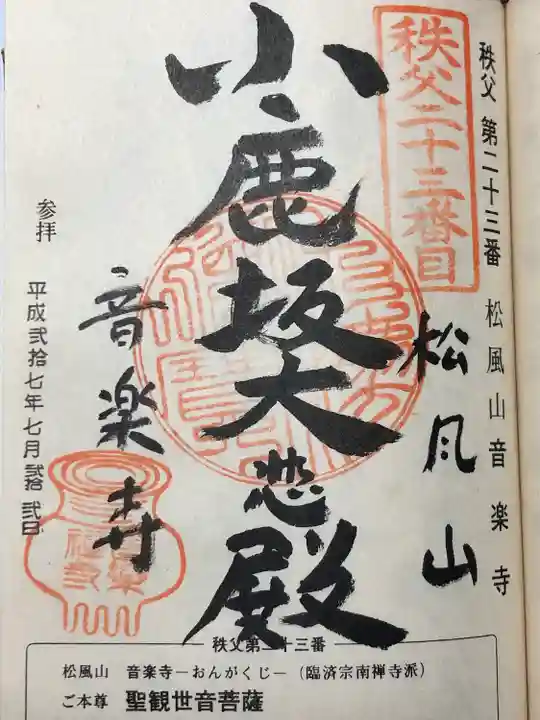 秩父 第二十三番 松風山音楽寺
秩父二十三番目
松風山
小鹿坂大悲殿
音楽寺
参拝
平成弐拾七年七月弐拾弐日
秩父第二十三番
松風山 音楽寺－おんがくじ－（臨済宗南禅寺派）
ご本尊 聖観世音菩薩